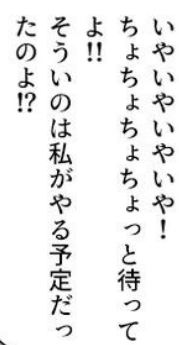 いやいやいやいや！
ちょちょちょちょっと待って
よ!!
そういのは私がやる予定だっ
たのよ!?